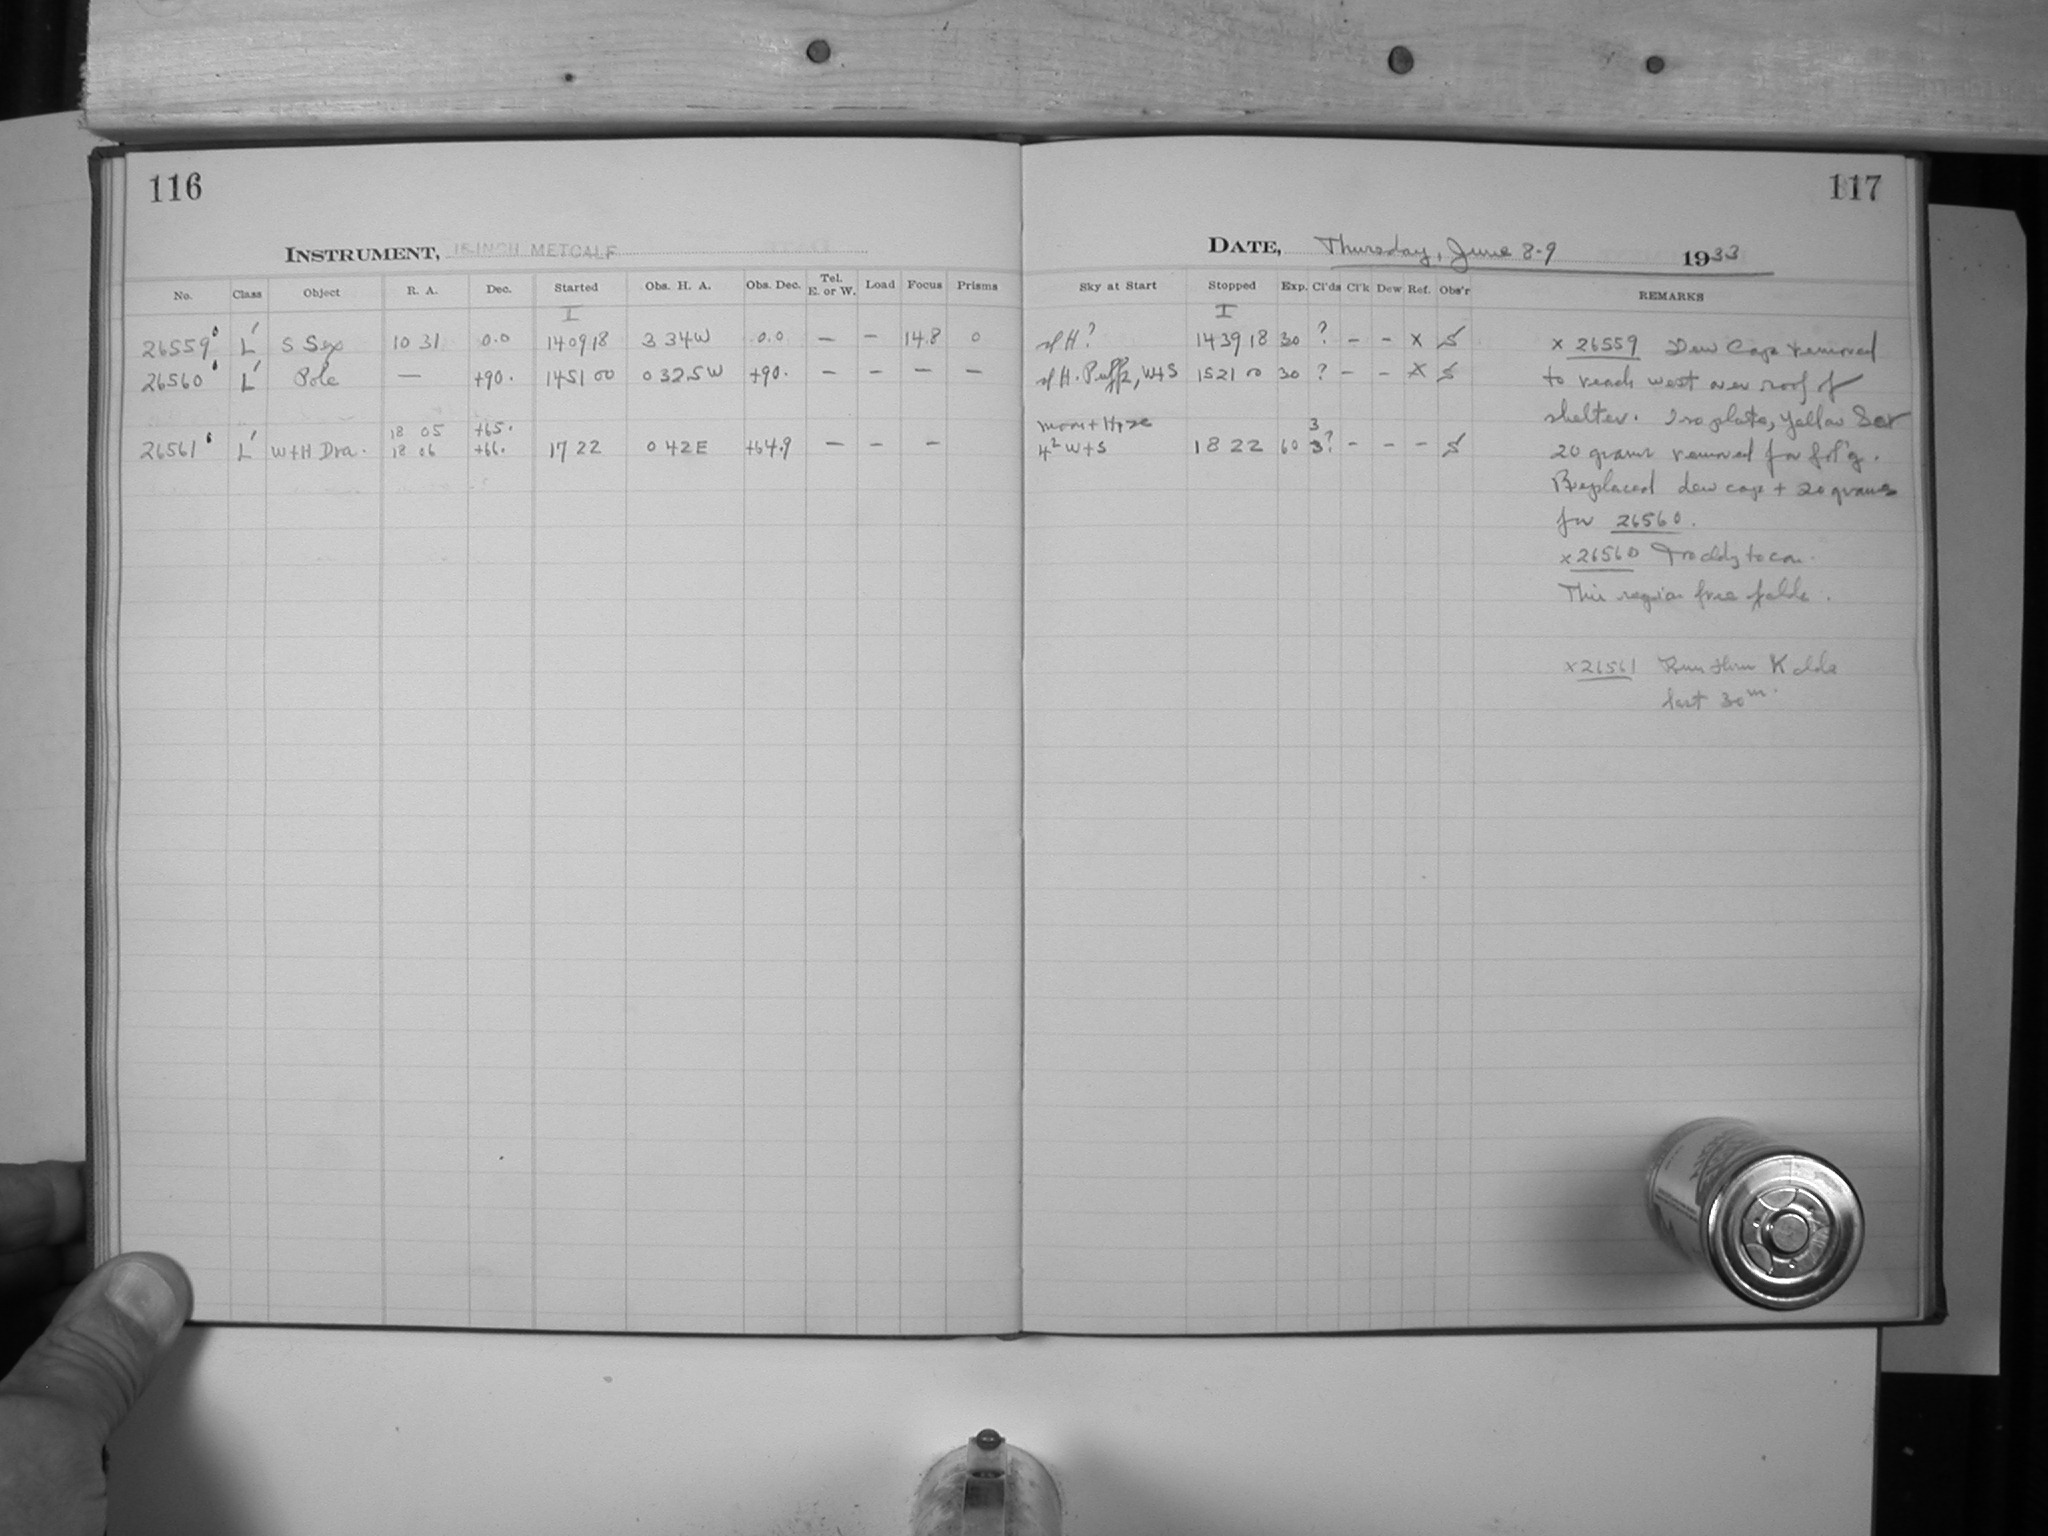 116
117
INSTRUMENT, 16 INCH METCALF
DATE, Thursday, June 8-9 1933
No. Class Object R. A. Dec. Started Obs. H. A. Obs. Dec. Tel. E. or W. Load Focus Prisms Sky at Start Stopped Exp. Cl'ds Cl'k Dew Ref. Obs'r REMARKS
I I
26559 L' S Sex 10 31 0.0 14 09 18 3 34 W 0.0 — — 14.8 0 H? 14 39 18 30 ? – – x S
26560 L' Pole — +90. 14 51 00 0 32.5 W +90. — — — — H. Puffs, W+S 15 21 00 30 ? – – x S
18 05 +65. moon + Haze 3
26561 L' W+H Dra. 18 06 +66. 17 22 0 42 E +64.9 — — — 4² W+S 18 22 60 3? – – – S
x 26559 Dew Cap removed
to reach west over roof of
shelter. Iso plate, yellow
20 grams removed for fol'g.
Replaced dew cap + 20 grams
for 26560.
x 26560
This region free
x 26561 thru K clds
last 30m.